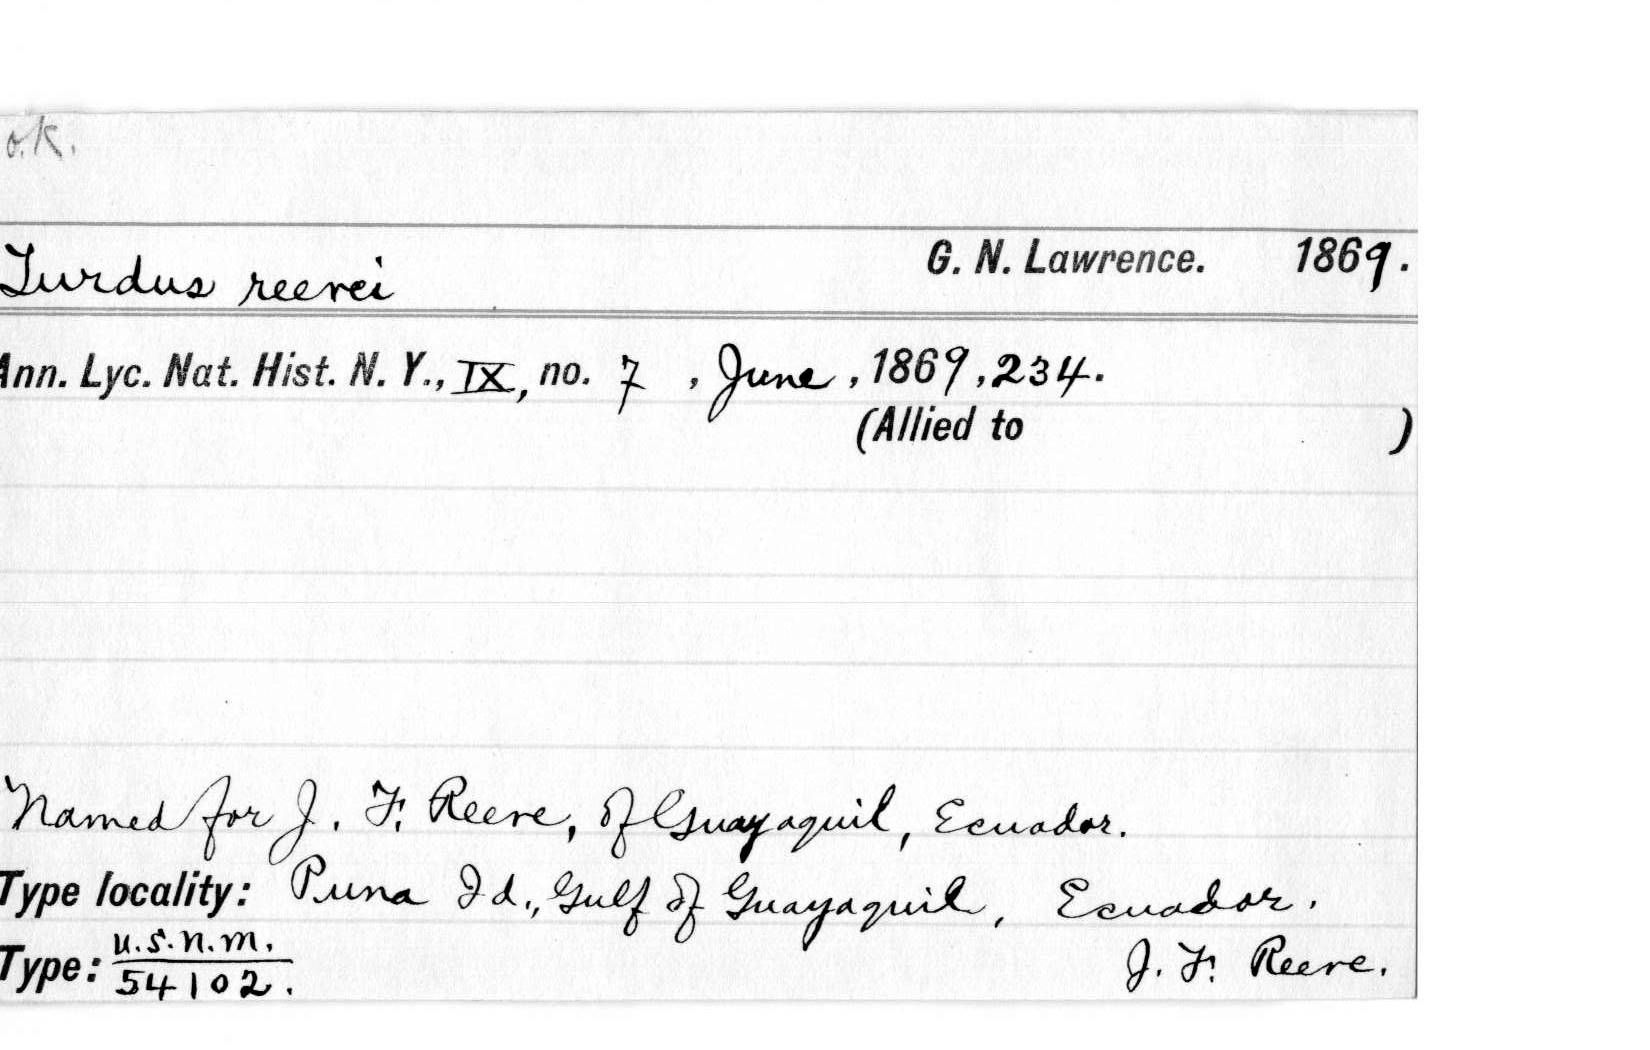 o.k.
Turdus reevei G. N. Lawrence. 1869.
Ann. Lyc. Nat. Hist. N. Y., IX, no. 7 , June , 1869 , 234.
(Allied to )
Named for J. F. Reeve, of Guayaquil, Ecuador.
Type locality: Puna Id., Gulf of Guayaquil, Ecuador.
Type: U.S.N.M. J. F. Reeve.
54102.